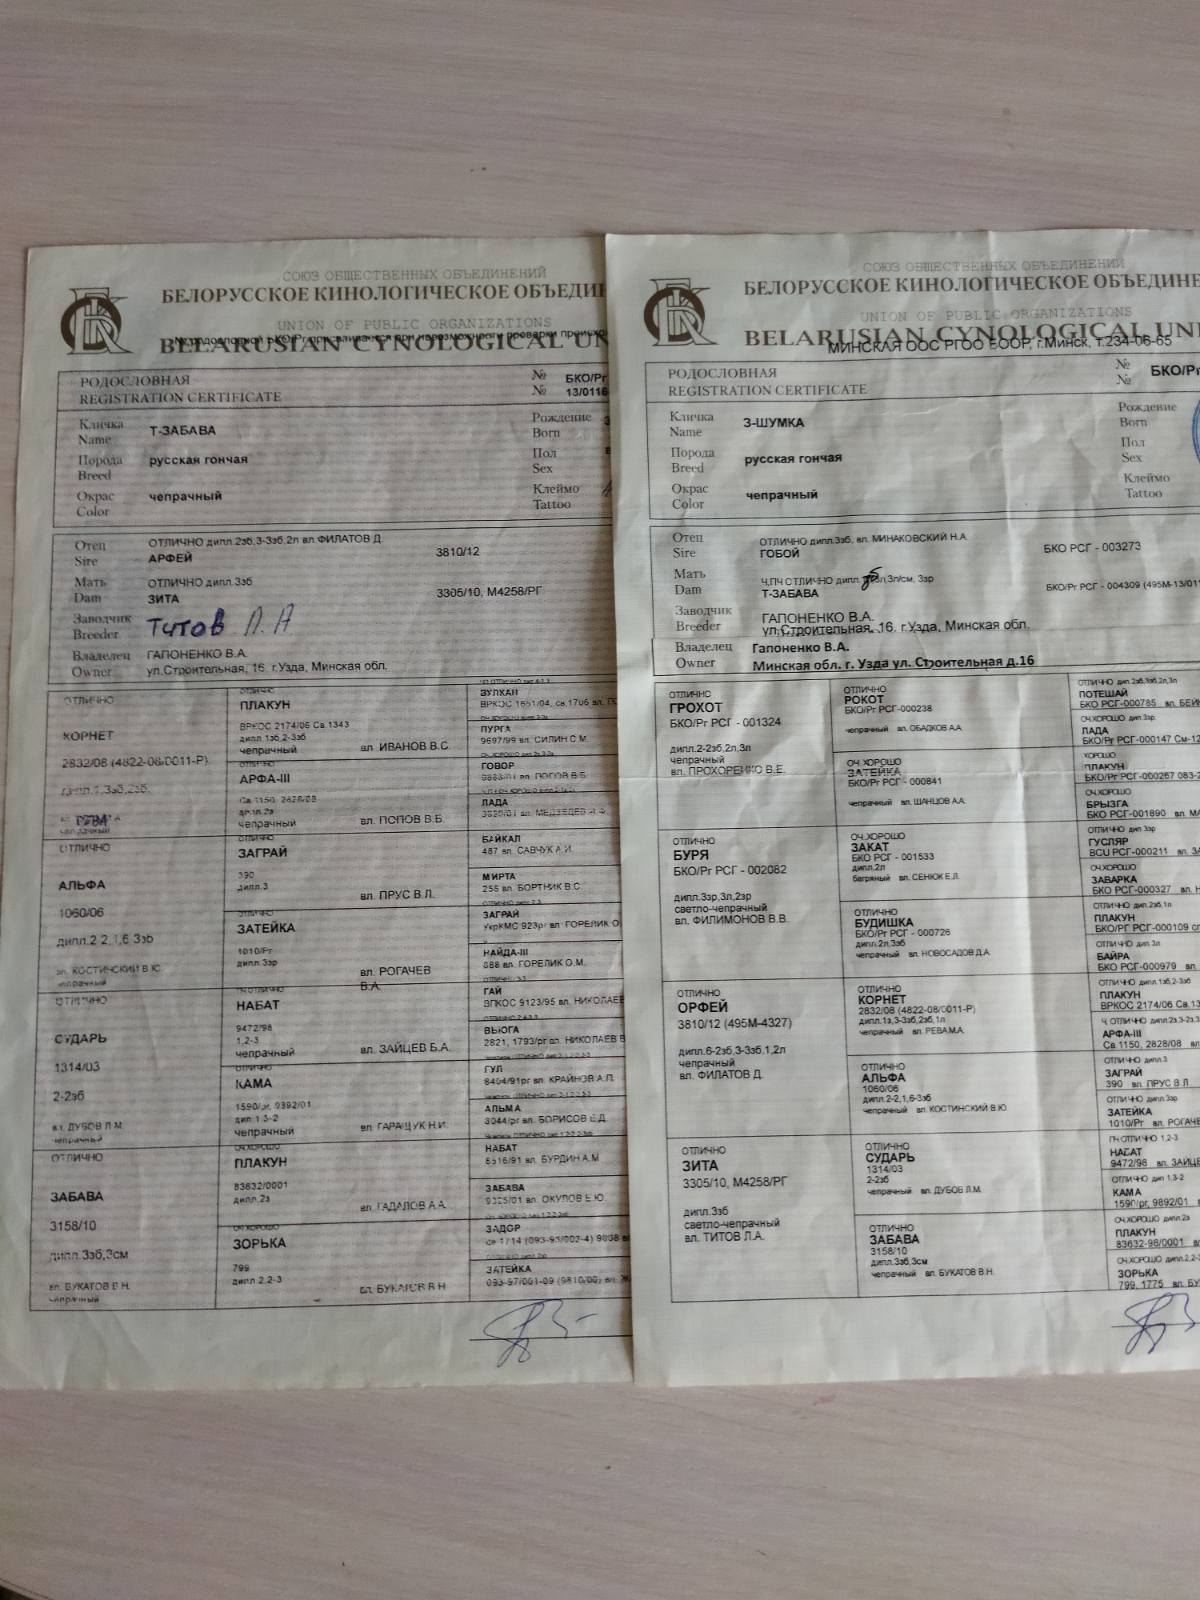 СОЮЗ ОБЩЕСТВЕННЫХ ОБЪЕДИНЕНИЙ
БЕЛОРУССКОЕ КИНОЛОГИЧЕСКОЕ ОБЪЕДИ
UNION OF PUBLIC ORGANIZATIONS
BELARUSIAN CYNOLOGICAL UN
РОДОСЛОВНАЯ
REGISTRATION CERTIFICATE
№ БКО/Рг
№ 13/0116
Кличка
Name
Т-ЗАБАВА
Рождение
Born
Порода
Breed
русская гончая
Пол
Sex
Окрас
Color
чепрачный
Клеймо
Tattoo
Отец
Sire
ОТЛИЧНО дипл.2зб,3-3зб,2л вл.ФИЛАТОВ Д.
АРФЕЙ
3810/12
Мать
Dam
ОТЛИЧНО дипл.3зб
ЗИТА
3305/10, М4258/РГ
Заводчик
Breeder
Титов Л.А
Владелец
Owner
ГАПОНЕНКО В.А.
ул.Строительная, 16. г.Узда, Минская обл.
ОТЛИЧНО
КОРНЕТ
2832/08 (4822-08/0011-Р)
дипл.1,3зб,2зб,
чепрачный
ОТЛИЧНО
АЛЬФА
1060/06
дипл.2-2,1,6-3зб
вл. КОСТИНСКИЙ В.Ю.
чепрачный
ОТЛИЧНО
СУДАРЬ
1314/03
2-2зб
вл. ДУБОВ Л.М.
чепрачный
ОТЛИЧНО
ЗАБАВА
3158/10
дипл.3зб,3см
вл. БУКАТОВ В.Н.
чепрачный
ОТЛИЧНО
ПЛАКУН
ВРКОС 2174/06 Св.1343
дипл.1зб,2-3зб
чепрачный вл. ИВАНОВ В.С.
ОТЛИЧНО
АРФА-III
Св.1150, 2828/08
дипл.2з
чепрачный вл. ПОПОВ В.Б.
ОТЛИЧНО
ЗАГРАЙ
390
дипл.3
вл. ПРУС В.Л.
ОТЛИЧНО
ЗАТЕЙКА
1010/Рг
дипл.3зр
вл. РОГАЧЕВ
В.А.
НАБАТ
9472/98
1,2-3
чепрачный вл. ЗАЙЦЕВ Б.А.
ОТЛИЧНО
КАМА
1590/рг, 9392/01
дип 1,3-2
чепрачный вл. ГАРАЩУК Н.И.
ОЧ.ХОРОШО
ПЛАКУН
83632/0001
дипл.2з
вл. ГАДАЛОВ А.А.
ОЧ.ХОРОШО
ЗОРЬКА
799
дипл 2,2-3
вл. БУКАТОВ В.Н
ВУЛКАН
ВРКОС 1651/04, св.1706 вл.
ПУРГА
9697/99 вл. СИЛИН С.М.
ГОВОР
вл. ПОПОВ В.Б.
ЛАДА
вл. МЕДВЕДЕВ
БАЙКАЛ
487 вл. САВЧУК А.И.
МИРТА
255 вл. БОРТНИК В.С
ЗАГРАЙ
УкрКМС 923рг вл. ГОРЕЛИК О
НАЙДА-III
888 вл. ГОРЕЛИК О.М.
ГАЙ
ВПКОС 9123/95 вл. НИКОЛАЕВ
ВЬЮГА
2821, 1793/рг вл. НИКОЛАЕВ В
ГУЛ
8404/91рг вл. КРАЙНОВ А.П.
АЛЬМА
3044/рг вл. БОРИСОВ Е.Д.
НАБАТ
8516/91 вл. БУРДИН А.М
ЗАБАВА
9325/01 вл. ОКУЛОВ Е.Ю.
ЗАДОР
ЗАТЕЙКА
093-97/001-09 (9810/00) вл.
СОЮЗ ОБЩЕСТВЕННЫХ ОБЪЕДИНЕНИЙ
БЕЛОРУССКОЕ КИНОЛОГИЧЕСКОЕ ОБЪЕДИНЕ
UNION OF PUBLIC ORGANIZATIONS
BELARUSIAN CYNOLOGICAL UNI
МИНСКАЯ ООС РГОО БООР, г.Минск, т.234-06-65
РОДОСЛОВНАЯ
REGISTRATION CERTIFICATE
№
№ БКО/Рг
Кличка
Name
З-ШУМКА
Рождение
Born
Порода
Breed
русская гончая
Пол
Sex
Окрас
Color
чепрачный
Клеймо
Tattoo
Отец
Sire
ОТЛИЧНО дипл.3зб, вл. МИНАКОВСКИЙ Н.А.
ГОБОЙ
БКО РСГ - 003273
Мать
Dam
Ч.ПЧ ОТЛИЧНО дипл. 3л,3л/см, 3зр
Т-ЗАБАВА
БКО/Рг РСГ - 004309 (495М-13/011
Заводчик
Breeder
ГАПОНЕНКО В.А.
ул.Строительная, 16. г.Узда, Минская обл.
Владелец
Owner
Гапоненко В.А.
Минская обл. г. Узда ул. Строительная д.16
ОТЛИЧНО
ГРОХОТ
БКО/Рг РСГ - 001324
дипл.2-2зб,2л,3л
чепрачный
вл. ПРОХОРЕНКО В.Е.
БУРЯ
БКО/Рг РСГ - 002082
дипл.3зр,3л,2зр
светло-чепрачный
вл. ФИЛИМОНОВ В.В.
ОТЛИЧНО
ОРФЕЙ
3810/12 (495М-4327)
дипл.6-2зб,3-3зб,1,2л
чепрачный
вл. ФИЛАТОВ Д.
ОТЛИЧНО
ЗИТА
3305/10, М4258/РГ
дипл.3зб
светло-чепрачный
вл. ТИТОВ Л.А.
ОТЛИЧНО
РОКОТ
БКО/Рг РСГ-000238
чепрачный вл. ОБАДКОВ А.А.
ОЧ.ХОРОШО
ЗАТЕЙКА
БКО/Рг РСГ - 000841
чепрачный вл. ШАНЦОВ А.А.
ОЧ.ХОРОШО
ЗАКАТ
БКО РСГ - 001533
дипл.2л
багряный вл. СЕНЮК Е.Л.
ОТЛИЧНО
БУДИШКА
БКО/Рг РСГ - 000726
дипл.2л,3зб
чепрачный вл. НОВОСАДОВ Д.А.
ОТЛИЧНО
КОРНЕТ
2832/08 (4822-08/0011-Р)
дипл.1з,3-3зб,2зб,1л
чепрачный вл. РЕВА М.А.
ОТЛИЧНО
АЛЬФА
1060/06
дипл.2-2,1,6-3зб
чепрачный вл. КОСТИНСКИЙ В.Ю.
ОТЛИЧНО
СУДАРЬ
1314/03
2-2зб
чепрачный вл. ДУБОВ Л.М.
ОТЛИЧНО
ЗАБАВА
3158/10
дипл.3зб,3см
чепрачный вл. БУКАТОВ В.Н.
ОТЛИЧНО дип.2зб,3зб,2л,3л
ПОТЕШАЙ
БКО РСГ-000785 вл. БЕЙ
ОЧ.ХОРОШО дип.3зр
ЛАДА
БКО/Рг РСГ-000147 См-12
ХОРОШО
ПЛАКУН
БКО/Рг РСГ-000267 083-2
ОЧ.ХОРОШО
БРЫЗГА
БКО РСГ-001890 вл. МА
ОТЛИЧНО дип 3зр
ГУСЛЯР
BCU РСГ-000211 вл. ЗА
ОЧ.ХОРОШО
ЗАВАРКА
БКО РСГ-000327 вл. Н
ОТЛИЧНО дип.2зб,1л
ПЛАКУН
БКО/РГ РСГ-000109 сп
ОТЛИЧНО дип.3л
БАЙРА
БКО РСГ-000979 вл.
ОТЛИЧНО дипл.1зб,2-3зб
ПЛАКУН
ВРКОС 2174/06 Св.13
Ч.ОТЛИЧНО дипл.2з,3-2з,3
АРФА-III
Св.1150, 2828/08 вл
ОТЛИЧНО дипл.3
ЗАГРАЙ
390 вл. ПРУС В.Л
ОТЛИЧНО дипл.3зр
ЗАТЕЙКА
1010/Рг вл. РОГАЧЕ
ПЧ ОТЛИЧНО 1,2-3
НАБАТ
9472/98 вл. ЗАЙЦЕ
ОТЛИЧНО дип 1,3-2
КАМА
1590/рг, 9892/01 в
ОЧ.ХОРОШО дипл.2з
ПЛАКУН
83632-98/0001 вл
ОЧ.ХОРОШО дипл.2,2-3
ЗОРЬКА
799, 1775 вл. БУ